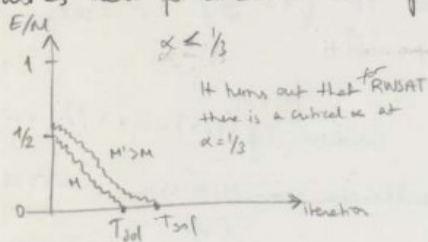 E/M
α < 1/3
1
It turns out that for RWSAT
there is a critical α at
α = 1/3
1/2
M' > M
M
0
Tsol Tsol
iteration